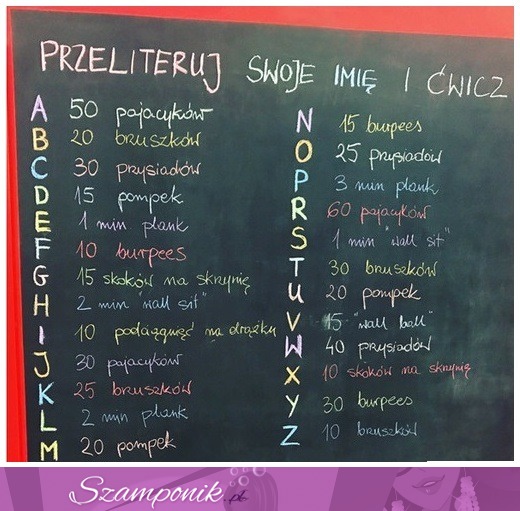 PRZELITERUJ SWOJE IMIĘ I ĆWICZ
A 50 pajacyków
B 20 brzuszków
C 30 przysiadów
D 15 pompek
E 1 min plank
F 10 burpees
G 15 skoków na skrzynię
H 2 min "wall sit"
I 10 podciągnięć na drążku
J 30 pajacyków
K 25 brzuszków
L 2 min plank
M 20 pompek
N 15 burpees
O 25 przysiadów
P 3 min plank
R 60 pajacyków
S 1 min "wall sit"
T 30 brzuszków
U 20 pompek
V 15 "wall ball"
W 40 przysiadów
X 10 skoków na skrzynię
Y 30 burpees
Z 10 brzuszków
Szamponik.pl